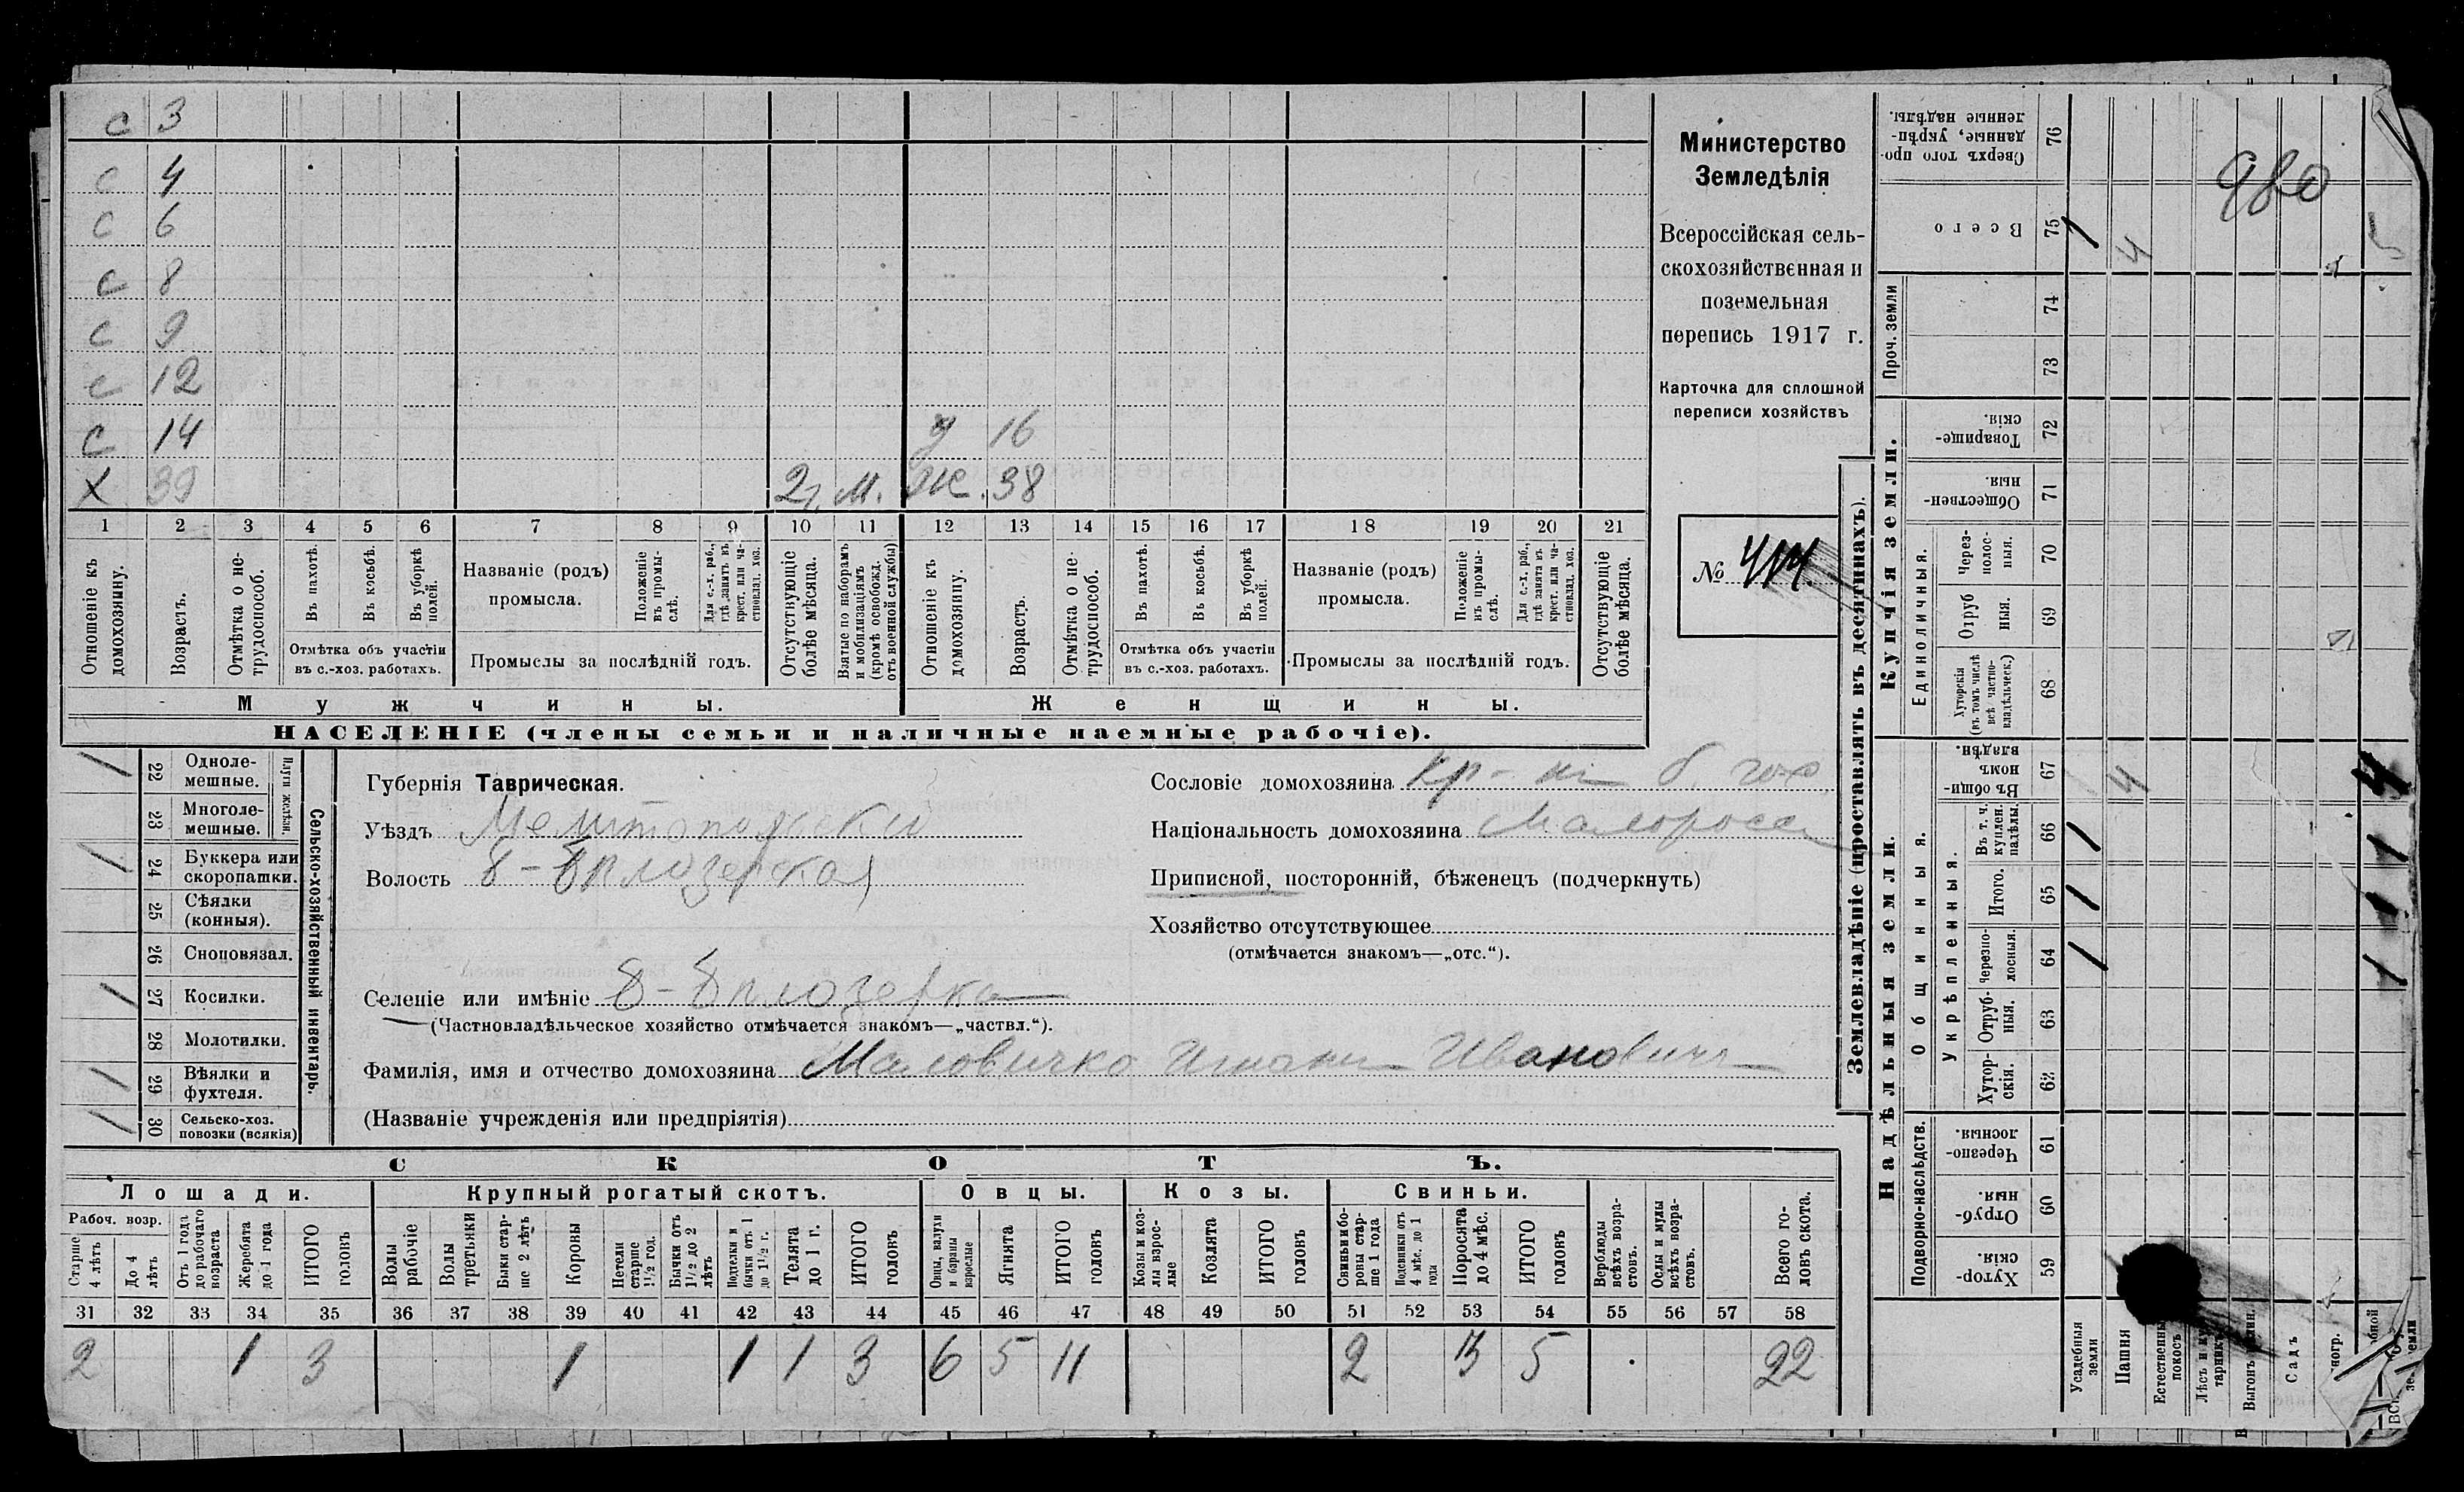 с 3
с 4
с 6
с 8
с 9
с 12
с 14 д 16
х 39 2 г. м. Ж. 38
1 2 3 4 5 6 7 8 9 10 11 12 13 14 15 16 17 18 19 20 21
Отношеніе къ домохозяину.
Возрастъ.
Отмѣтка о не-трудоспособ.
Въ пахотѣ.
Въ косьбѣ.
Въ уборкѣ полей.
Отмѣтка объ участіи
въ с.-хоз. работахъ.
Названіе (родъ)
промысла.
Положеніе въ промы-слѣ.
Для с.-х. раб., гдѣ занятъ въ крест. или ча-стновлад. хоз.
Промыслы за послѣдній годъ.
Отсутствующіе болѣе мѣсяца.
Взятые по наборамъ и мобилизаціямъ (кромѣ освобожд. отъ военной службы)
Отношеніе къ домохозяину.
Возрастъ.
Отмѣтка о не-трудоспособ.
Въ пахотѣ.
Въ косьбѣ.
Въ уборкѣ полей.
Отмѣтка объ участіи
въ с.-хоз. работахъ.
Названіе (родъ)
промысла.
Положеніе въ промы-слѣ.
Для с.-х. раб., гдѣ занята въ крест. или ча-стновлад. хоз.
Промыслы за послѣдній годъ.
Отсутствующіе болѣе мѣсяца.
Мужчины. Женщины.
НАСЕЛЕНІЕ (члены семьи и наличные наемные рабочіе).
Министерство
Земледѣлія
Всероссійская сель-
скохозяйственная и
поземельная
перепись 1917 г.
Карточка для сплошной
переписи хозяйствъ
№ 414.
Сельско-хозяйственный инвентарь.
Плуги желѣзн.
1 22 Одноле-мешные.
23 Многоле-мешные.
1 24 Буккера или скоропашки.
25 Сѣялки (конныя).
26 Сноповязал.
1 27 Косилки.
28 Молотилки.
1 29 Вѣялки и фухтеля.
1 30 Сельско-хоз. повозки (всякія)
Губернія Таврическая.
Уѣздъ Мелитопольскій
Волость Б-Бѣлозерская
Селеніе или имѣніе Б-Бѣлозерка
(Частновладѣльческое хозяйство отмѣчается знакомъ—„частвл.“).
Фамилія, имя и отчество домохозяина Маловичко Иванович
(Названіе учрежденія или предпріятія)
Сословіе домохозяина Кр-нъ
Національность домохозяина Малоросс
Приписной, посторонній, бѣженецъ (подчеркнуть)
Хозяйство отсутствующее
(отмѣчается знакомъ—„отс.“).
СКОТЪ.
Лошади. Крупный рогатый скотъ. Овцы. Козы. Свиньи.
Рабоч. возр.
Старше 4 лѣтъ
До 4 лѣтъ
Отъ 1 года до рабочаго возраста
Жеребята до 1 года
ИТОГО головъ
Волы рабочіе
Волы третьяки
Быки стар-ше 2 лѣтъ
Коровы
Нетели старше 1½ год.
Бычки отъ 1½ до 2 лѣтъ
Подтелки и бычки отъ 1 до 1½ г.
Телята до 1 г.
ИТОГО головъ
Овцы, валухи и бараны взрослые
Ягнята
ИТОГО головъ
Козы и коз-лы взрос-лые
Козлята
ИТОГО головъ
Свиньи и бо-ровы стар-ше 1 года
Подсвинки отъ 4 мѣс. до 1 года
Поросята до 4 мѣс.
ИТОГО головъ
Верблюды всѣхъ возра-стовъ.
Ослы и мулы всѣхъ возра-стовъ.
Всего го-ловъ скота.
31 32 33 34 35 36 37 38 39 40 41 42 43 44 45 46 47 48 49 50 51 52 53 54 55 56 57 58
2 1 3 1 1 1 3 6 5 11 2 3 5 22
Землевладѣніе (проставлять въ десятинахъ).
Купчія земли.
Надѣльныя земли.
980
Сверхъ того про-данные, укрѣп-ленные надѣлы. 76
Всего 75 1 4
Проч. земли
74
73
Товарище-скія. 72
Обществен-ныя. 71
Единоличныя.
Через-полос-ныя. 70
Отруб-ныя. 69
Хуторскія (въ томъ числѣ всѣ частно-владѣльческ.) 68
Общинныя.
Въ общин-номъ владѣн. 67 4 4
Укрѣпленныя.
Въ т. ч. куплен. надѣлы. 66 1 1
Итого. 65 1 1
Черезпо-лосныя. 64 1 1
Отруб-ныя. 63
Хутор-скія. 62
Подворно-наслѣдств.
Черезпо-лосныя. 61
Отруб-ныя. 60
Хутор-скія. 59
Усадебныя земли
Пашня
Естественный покосъ
Садъ